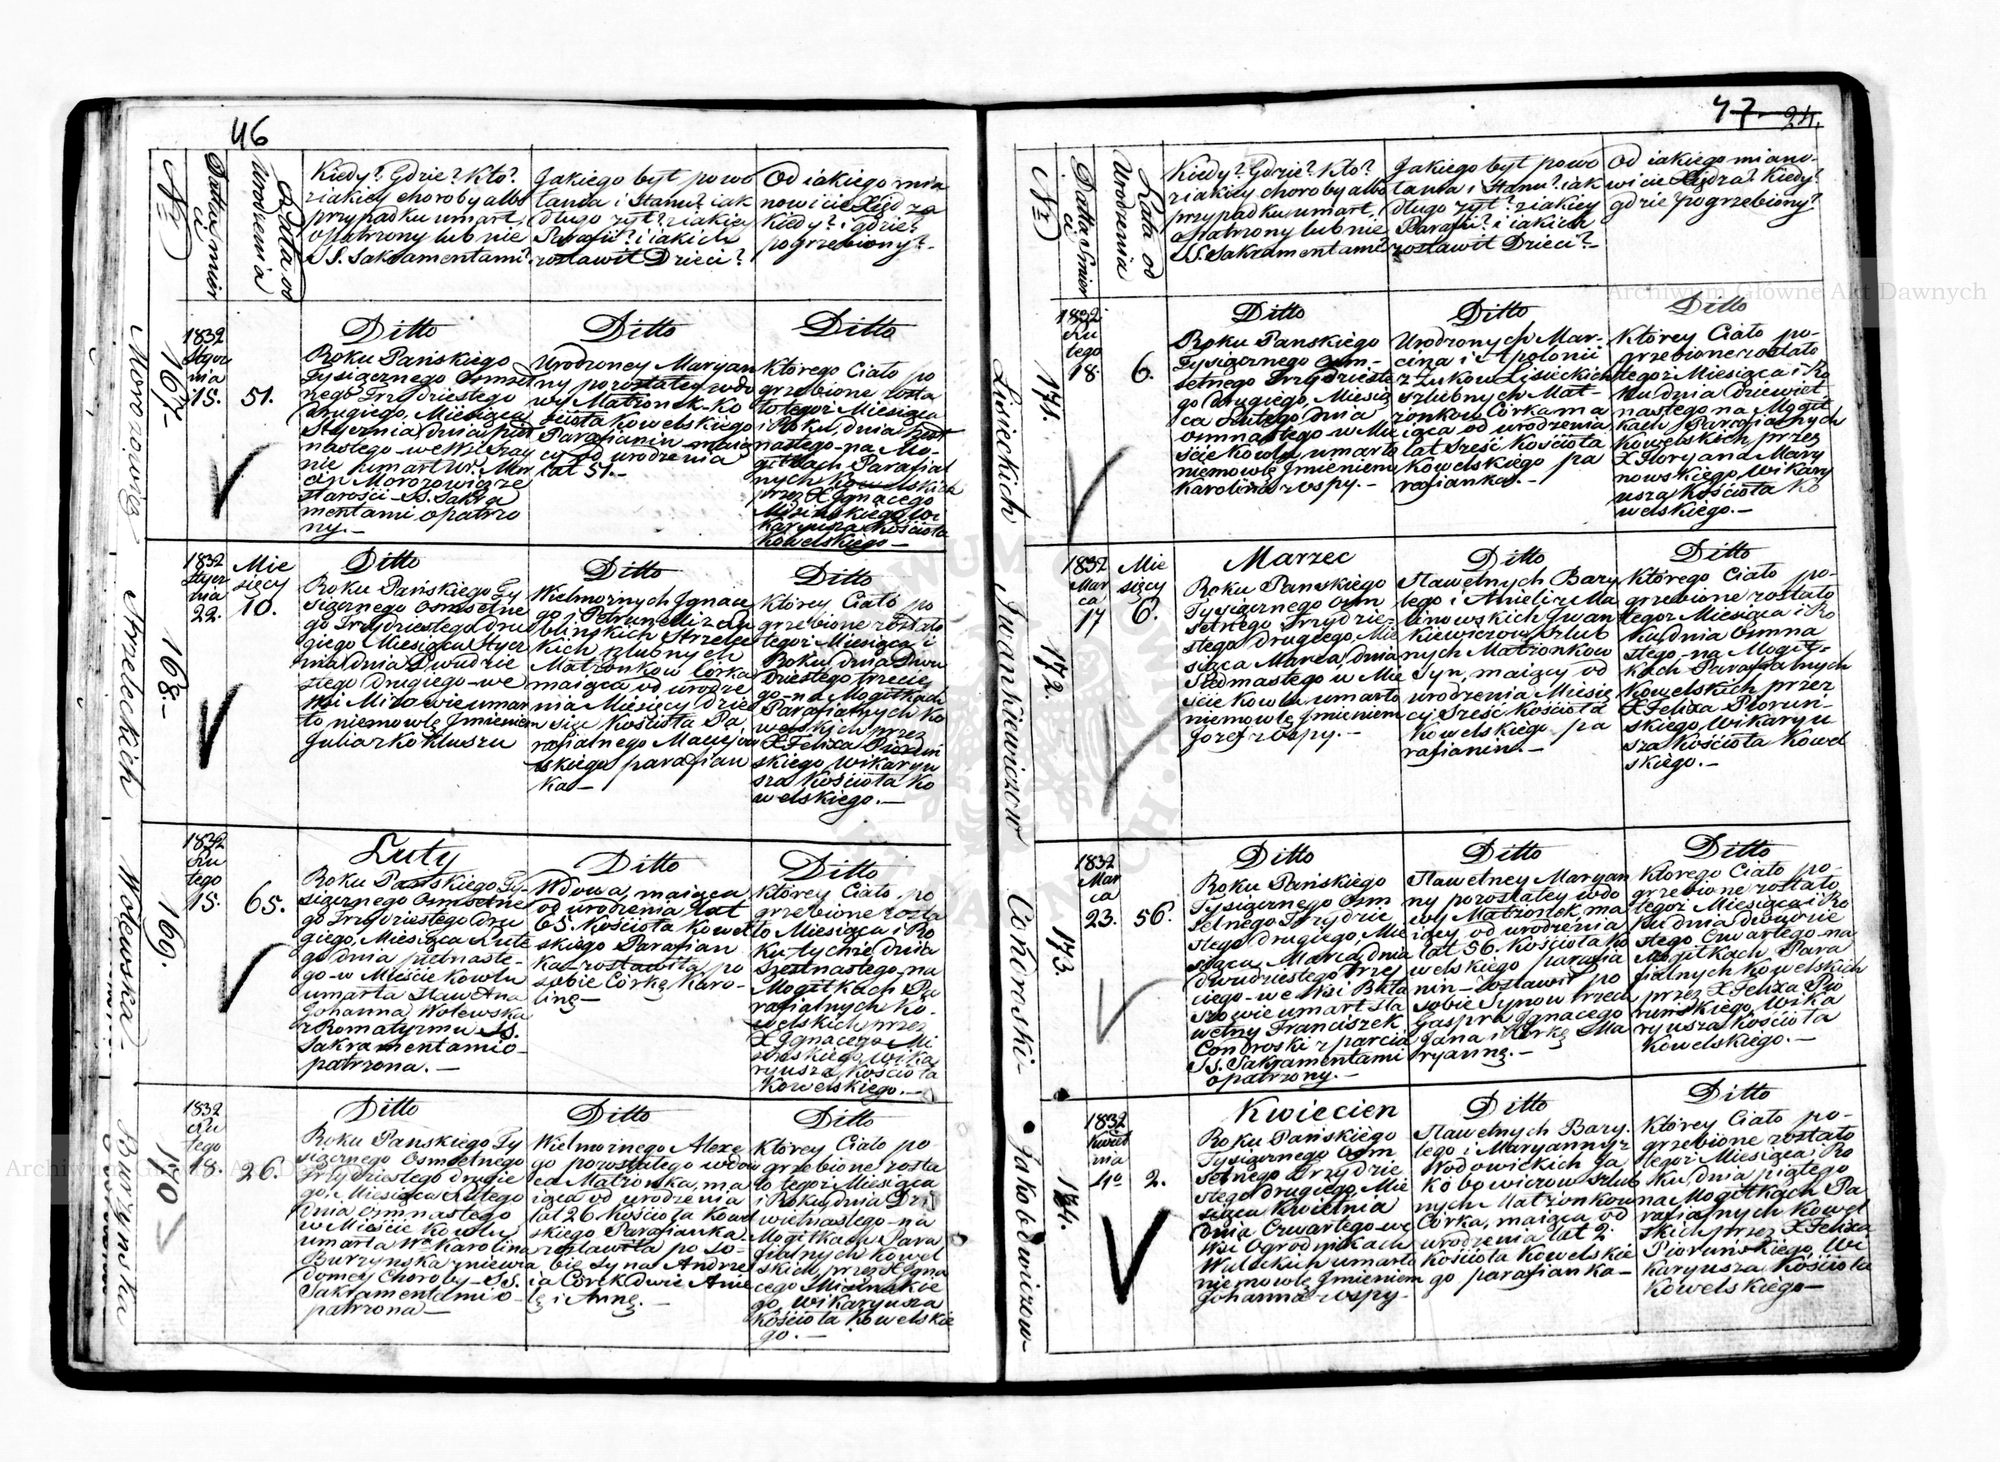 46
Nro
Datta śmierci
Lata od Urodzenia
Kiedy? Gdzie? Kto?
z iakiey choroby albo
przypadku umarł,
opatrzony lub nie
SS. Sakramentami?
Jakiego był powo
łania i Stanu? iak
długo żył? z iakiey
Parafii? i iakich
zostawił Dzieci?
Od iakiego mia
nowicie Xiędza
Kiedy? i gdzie?
pogrzebiony?
Morozowicz
167.
1832
Stycz
nia
15.
51.
Ditto
Roku Pańskiego
Tysiącznego Ośmset
nego Trzydziestego
drugiego, Miesiąca
Stycznia, dnia pięt
nastego we Wsi
umarł Ur: Mar
cin Morozowicz ze
starości SS. Sakra
mentami opatrzo
ny.
Ditto
Urodzoney Maryan
ny pozostałey wdo
wy Małżonek Ko
ścioła Kowelskiego
Parafianin maią
cy od urodzenia
lat 51.
Ditto
Którego Ciało po
grzebione zosta
ło tegoż Miesiąca
i Roku, dnia
nastego na Mo
giłkach Parafial
nych Kowelskich
przez X Ignacego
Misińskiego Wi
karyusza Kościoła
Kowelskiego
Strzeleckich
168.
1832
Stycz
nia
22.
Mie
sięcy
10.
Ditto
Roku Pańskiego Ty
siącznego Ośmsetne
go Trzydziestego dru
giego Miesiąca Stycz
nia, dnia Dwudzie
stego drugiego we
Wsi Miłowie umar
ło niemowlę Imieniem
Julia z Kokluszu
Ditto
Wielmożnych Ignace
go i Petrunelli z
blińskich Strzelec
kich z ślubnych
Małżonków Córka
maiąca od urodze
nia Miesięcy dzie
sięć Kościoła Pa
rafialnego Macijow
skiego parafian
ka
Ditto
Którey Ciało po
grzebione zostało
tegoż Miesiąca i
Roku, dnia Dwu
dziestego trzecie
go na Mogiłkach
Parafialnych Ko
welskich przez
X Felixa Pioruń
skiego Wikaryu
sza Kościoła Ko
welskiego.
Wolewska
169.
1832
Lu
tego
15.
65.
Luty
Roku Pańskiego Ty
siącznego Ośmsetne
go Trzydziestego dru
giego, Miesiąca Lute
go dnia piętnaste
go w Mieście Kowlu
umarła Sław: Ana
Johanna Wolewska
z Romatyzmu SS.
Sakramentami o
patrzona.
Ditto
Wdowa, maiąca
od urodzenia lat
65. Kościoła Kowel
skiego Parafian
ka zostawiła po
sobie Córkę Karo
linę
Ditto
Którey Ciało po
grzebione zosta
ło Miesiąca i Ro
ku tychże dnia
Szestnastego na
Mogiłkach Pa
rafialnych Ko
welskich przez
X Ignacego Mi
sińskiego, Wika
ryusza Kościoła
Kowelskiego.
Burzynska
170
1832
Lu
tego
18.
26.
Ditto
Roku Pańskiego Ty
siącznego Ośmsetnego
Trzydziestego drugie
go, Miesiąca Lutego
dnia ośmnastego
w Mieście Kowlu
umarła Wa Karolina
Burzynska z niewia
domey Choroby SS.
Sakramentami o
patrzona
Ditto
Wielmożnego Alexe
go pozostałego wdow
ca Małżonka, ma
iąca od urodzenia
lat 26 Kościoła Kowel
skiego Parafianka
zostawiła po So
bie Syna Andrze
ia Córek dwie Anie
lę i Annę.
Ditto
Którey Ciało po
grzebione zosta
ło tegoż Miesiąca
i Roku, dnia Dzie
więtnastego na
Mogiłkach Para
fialnych Kowel
skich, przez X Igna
cego Misińskie
go, Wikaryusza
Kościoła Kowelskie
go.
47 24.
Nro
Datta Śmierci
Lata od Urodzenia
Kiedy? Gdzie? Kto?
z iakiey choroby albo
przypadku umarł,
opatrzony lub nie
SS. Sakramentami?
Jakiego był powo
łania i Stanu? iak
długo żył? z iakiey
Parafii? i iakich
zostawił Dzieci?
Od iakiego miano
wicie Xiędza? Kiedy?
gdzie pogrzebiony?
Lisieckich
171.
1832
Lu
tego
18.
6.
Ditto
Roku Pańskiego
Tysiącznego Ośm
setnego Trzydzieste
go drugiego, Miesią
ca Lutego dnia
ośmnastego w Mie
ście Kowlu umarło
niemowlę Imieniem
Karolina z ospy.
Ditto
Urodzonych Mar
cina i Apolonii
z Żuków Lisieckich
z ślubnych Mał
żonków Córka ma
iąca od urodzenia
lat sześć Kościoła
Kowelskiego pa
rafianka.
Ditto
Którey Ciało po
grzebione zostało
tegoż Miesiąca i Ro
ku dnia Dziewięt
nastego na Mogił
kach Parafialnych
Kowelskich przez
X Floryana Mary
nowskiego, Wikary
usza, Kościoła Ko
welskiego.
Iwankiewiczow
172.
1832
Mar
ca
17
Mie
sięcy
6.
Marzec
Roku Pańskiego
Tysiącznego Ośm
setnego Trzydzie
stego drugiego, Mie
siąca Marca, dnia
Siedmastego w Mie
ście Kowlu umarło
niemowlę Imieniem
Jozef z ospy.
Ditto
Sławetnych Bazy
lego i Anieli z Ma
linowskich Iwan
kiewiczow z ślub
nych Małżonkow
Syn, maiący od
urodzenia Miesię
cy Sześć Kościoła
Kowelskiego pa
rafianin.
Ditto
Którego Ciało po
grzebione zostało
tegoż Miesiąca i Ro
ku, dnia Ośmna
stego na Mogił
kach Parafialnych
Kowelskich przez
X Felixa Piorun
skiego, Wikaryu
sza Kościoła Kowel
skiego.
Conorowski
173.
1832
Mar
ca
23.
56.
Ditto
Roku Pańskiego
Tysiącznego Ośm
setnego Trzydzie
stego drugiego, Mie
siąca, Marca, dnia
dwudziestego trze
ciego we Wsi
umarł Sła
wetny Franciszek
z parcia
SS. Sakramentami
opatrzony.
Ditto
Sławetney Maryan
ny pozostałey wdo
wy Małżonek, ma
iący od urodzenia
lat 56. Kościoła Ko
welskiego parafia
nin zostawił po
sobie Synow trzech
Gaspra Ignacego
Jana i Córkę Ma
ryannę.
Ditto
Którego Ciało po
grzebione zostało
tegoż Miesiąca i Ro
ku dnia dwudzie
stego Czwartego na
Mogiłkach Para
fialnych Kowelskich
przez X Felixa Pio
runskiego, Wika
ryusza Kościoła
Kowelskiego.
Jakobowiczow
174.
1832
Kwiet
nia
4o
2.
Kwiecien
Roku Pańskiego
Tysiącznego Ośm
setnego Trzydzie
stego drugiego, Mie
siąca Kwietnia
dnia Czwartego we
Wsi Ogrodnikach
umarło
niemowlę Imieniem
Johanna z ospy
Ditto
Sławetnych Bazy
lego i Maryanny z
Wodowickich Ja
kobowiczow z ślub
nych Małżonkow
Córka, maiąca od
urodzenia lat 2.
Kościoła Kowelskie
go parafianka
Ditto
Którey Ciało po
grzebione zostało
tegoż Miesiąca, Ro
ku, dnia piątego
na Mogiłkach Pa
rafialnych Kowel
skich przez X Felixa
Piorunskiego, Wi
karyusza, Kościoła
Kowelskiego
Archiwum Główne Akt Dawnych